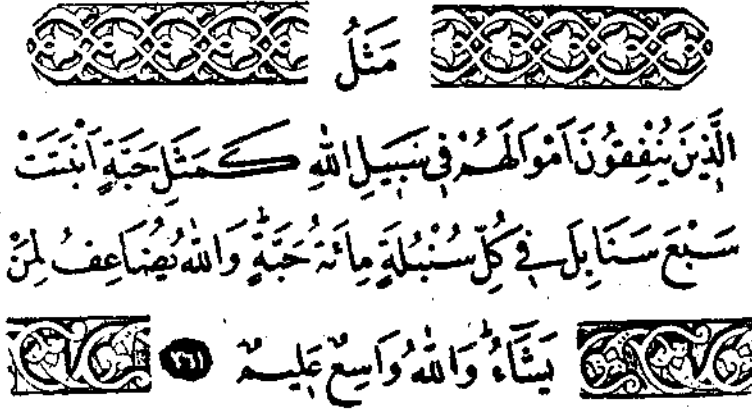 مَثَلُ
الَّذِينَ يُنْفِقُونَ اَمْوَالَهُمْ فِي سَبِيلِ اللّٰهِ كَمَثَلِ حَبَّةٍ اَنْبَتَتْ
سَبْعَ سَنَابِلَ فِي كُلِّ سُنْبُلَةٍ مِائَةُ حَبَّةٍۜ وَاللّٰهُ يُضَاعِفُ لِمَنْ
يَشَٓاءُۜ وَاللّٰهُ وَاسِعٌ عَلِيمٌ ﴿٢٦١﴾